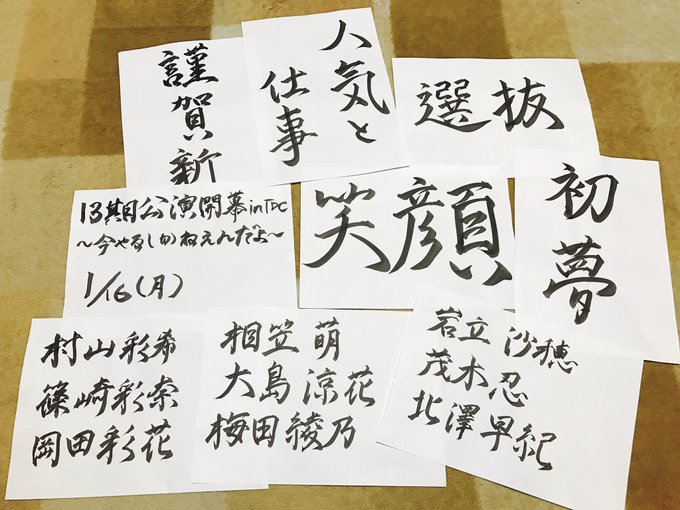 謹賀新
人気と
仕事
選抜
13期公演開幕inTDC
〜今やるしかねえんだよ〜
1/16(月)
笑顔
初夢
村山彩希
篠崎彩奈
岡田彩花
相笠萌
大島涼花
梅田綾乃
岩立沙穂
茂木忍
北澤早紀